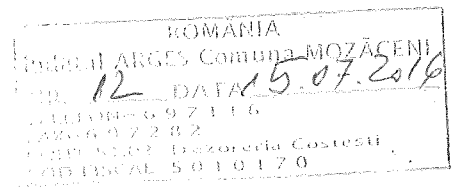 ROMANIA
Judetul ARGES Comuna MOZĂCENI
12 DATA 15.07.2016
697116
697282
Dezoreria Costesti
COD FISCAL 5010170